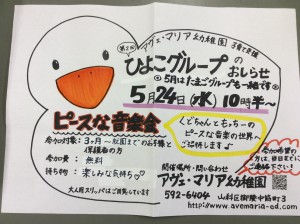 第2回 アヴェ・マリア幼稚園 子育て支援
ひよこグループのおしらせ
※5月はたまごグループも一緒です※
5月24日(水) 10時半〜
ピースな音楽会
くどちゃんともっちーの
ピースな音楽の世界へ
ご招待します♪
参加対象：3ヶ月〜就園までのお子様と
保護者の方
参加費：無料
持ち物：楽しみな気持ち♡
大人用スリッパはご用意しています
参加希望の
方は、前日までに
ご連絡下さい！
開催場所・問い合わせ
アヴェ・マリア幼稚園
592-6404 山科区御陵中筋町3
http://www.avemaria-ed.com